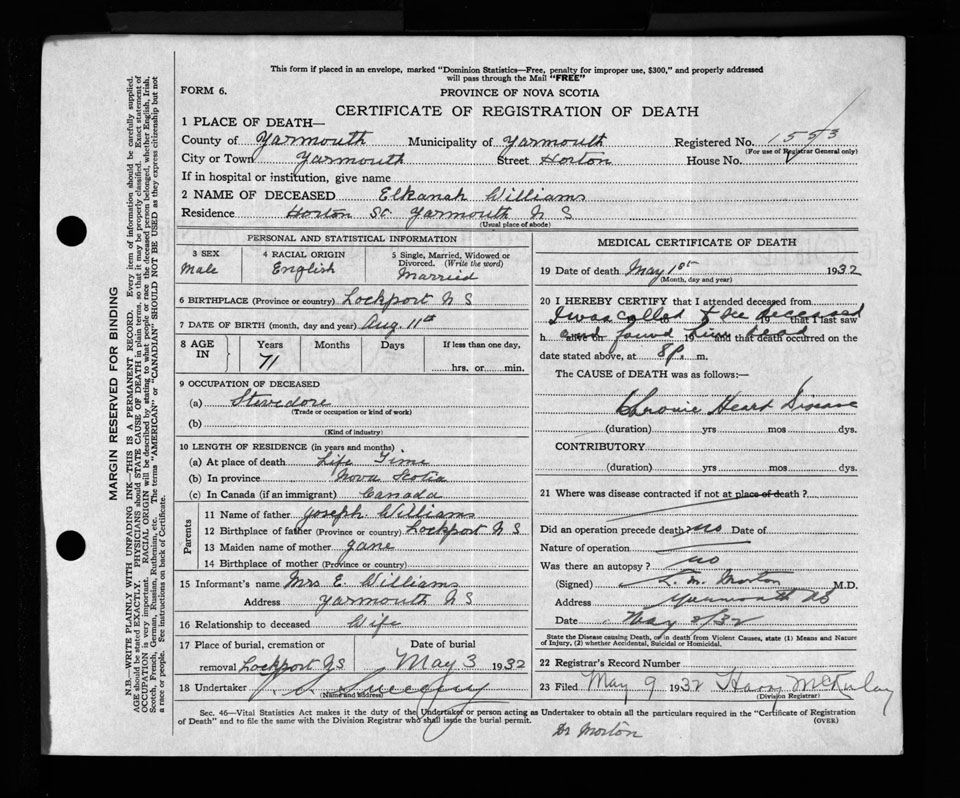 This form if placed in an envelope, marked "Dominion Statistics—Free, penalty for improper use, $300," and properly addressed
will pass through the Mail "FREE"
FORM 6.
PROVINCE OF NOVA SCOTIA
CERTIFICATE OF REGISTRATION OF DEATH
1 PLACE OF DEATH—
County of Yarmouth Municipality of Yarmouth Registered No. 1553
(For use of Registrar General only)
City or Town Yarmouth Street Horton House No.
If in hospital or institution, give name
2 NAME OF DECEASED Elkanah Williams
Residence Horton St. Yarmouth N S
(Usual place of abode)
MARGIN RESERVED FOR BINDING
N.B.—WRITE PLAINLY WITH UNFADING INK—THIS IS A PERMANENT RECORD. Every item of information should be carefully supplied.
AGE should be stated EXACTLY. PHYSICIANS should STATE CAUSE OF DEATH in plain terms, so that it may be properly classified. Exact statement of
OCCUPATION is very important. RACIAL ORIGIN will be described by stating to what people or race the deceased person belonged, whether English, Irish,
Scotch, French, German, Russian, Ruthenian, etc. The terms "AMERICAN" or "CANADIAN" SHOULD NOT BE USED as they express citizenship but not
a race or people. See instructions on back of Certificate.
PERSONAL AND STATISTICAL INFORMATION
3 SEX
Male
4 RACIAL ORIGIN
English
5 Single, Married, Widowed or
Divorced. (Write the word)
Married
6 BIRTHPLACE (Province or country) Lockport N S
7 DATE OF BIRTH (month, day and year) Aug. 11th
8 AGE
IN
Years
71
Months
Days
If less than one day,
hrs. or min.
9 OCCUPATION OF DECEASED
(a) Stevedore
(Trade or occupation or kind of work)
(b)
(Kind of industry)
10 LENGTH OF RESIDENCE (in years and months)
(a) At place of death Life Time
(b) In province Nova Scotia
(c) In Canada (if an immigrant) Canada
Parents
11 Name of father Joseph Williams
12 Birthplace of father (Province or country) Lockport N S
13 Maiden name of mother Jane
14 Birthplace of mother (Province or country)
15 Informant's name Mrs E. Williams
Address Yarmouth N S
16 Relationship to deceased Wife
17 Place of burial, cremation or
removal Lockport N S
Date of burial
May 3 1932
18 Undertaker
(Name and address)
MEDICAL CERTIFICATE OF DEATH
19 Date of death May 1st 1932
(Month, day and year)
20 I HEREBY CERTIFY that I attended deceased from
I was called to see deceased
19 that I last saw
and found him dead
h alive on 19 and that death occurred on the
date stated above, at 8 p. m.
The CAUSE of DEATH was as follows:—
Chronic Heart Disease
(duration) yrs mos dys.
CONTRIBUTORY
(duration) yrs mos dys.
21 Where was disease contracted if not at place of death ?
Did an operation precede death no Date of
Nature of operation
Was there an autopsy ? no
(Signed) L. M. Morton M.D.
Address Yarmouth NS
Date May 2/32
State the Disease causing Death, or in death from Violent Causes, state (1) Means and Nature
of Injury, (2) whether Accidental, Suicidal or Homicidal.
22 Registrar's Record Number
23 Filed May 9 1932 Harry McKinlay
(Division Registrar)
Sec. 46—Vital Statistics Act makes it the duty of the Undertaker or person acting as Undertaker to obtain all the particulars required in the "Certificate of Registration
of Death" and to file the same with the Division Registrar who shall issue the burial permit.
(OVER)
Dr Morton